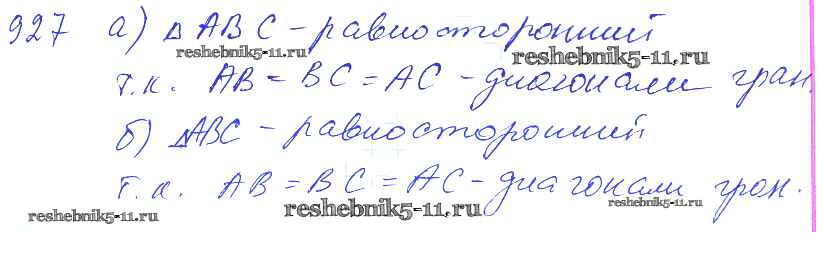 927 а) △ABC – равносторонний
reshebnik5-11.ru
reshebnik5-11.ru
т.к. AB = BC = AC – диагонали гран.
б) △ABC – равносторонний
т.к. AB = BC = AC – диагонали гран.
reshebnik5-11.ru
reshebnik5-11.ru
reshebnik5-11.ru